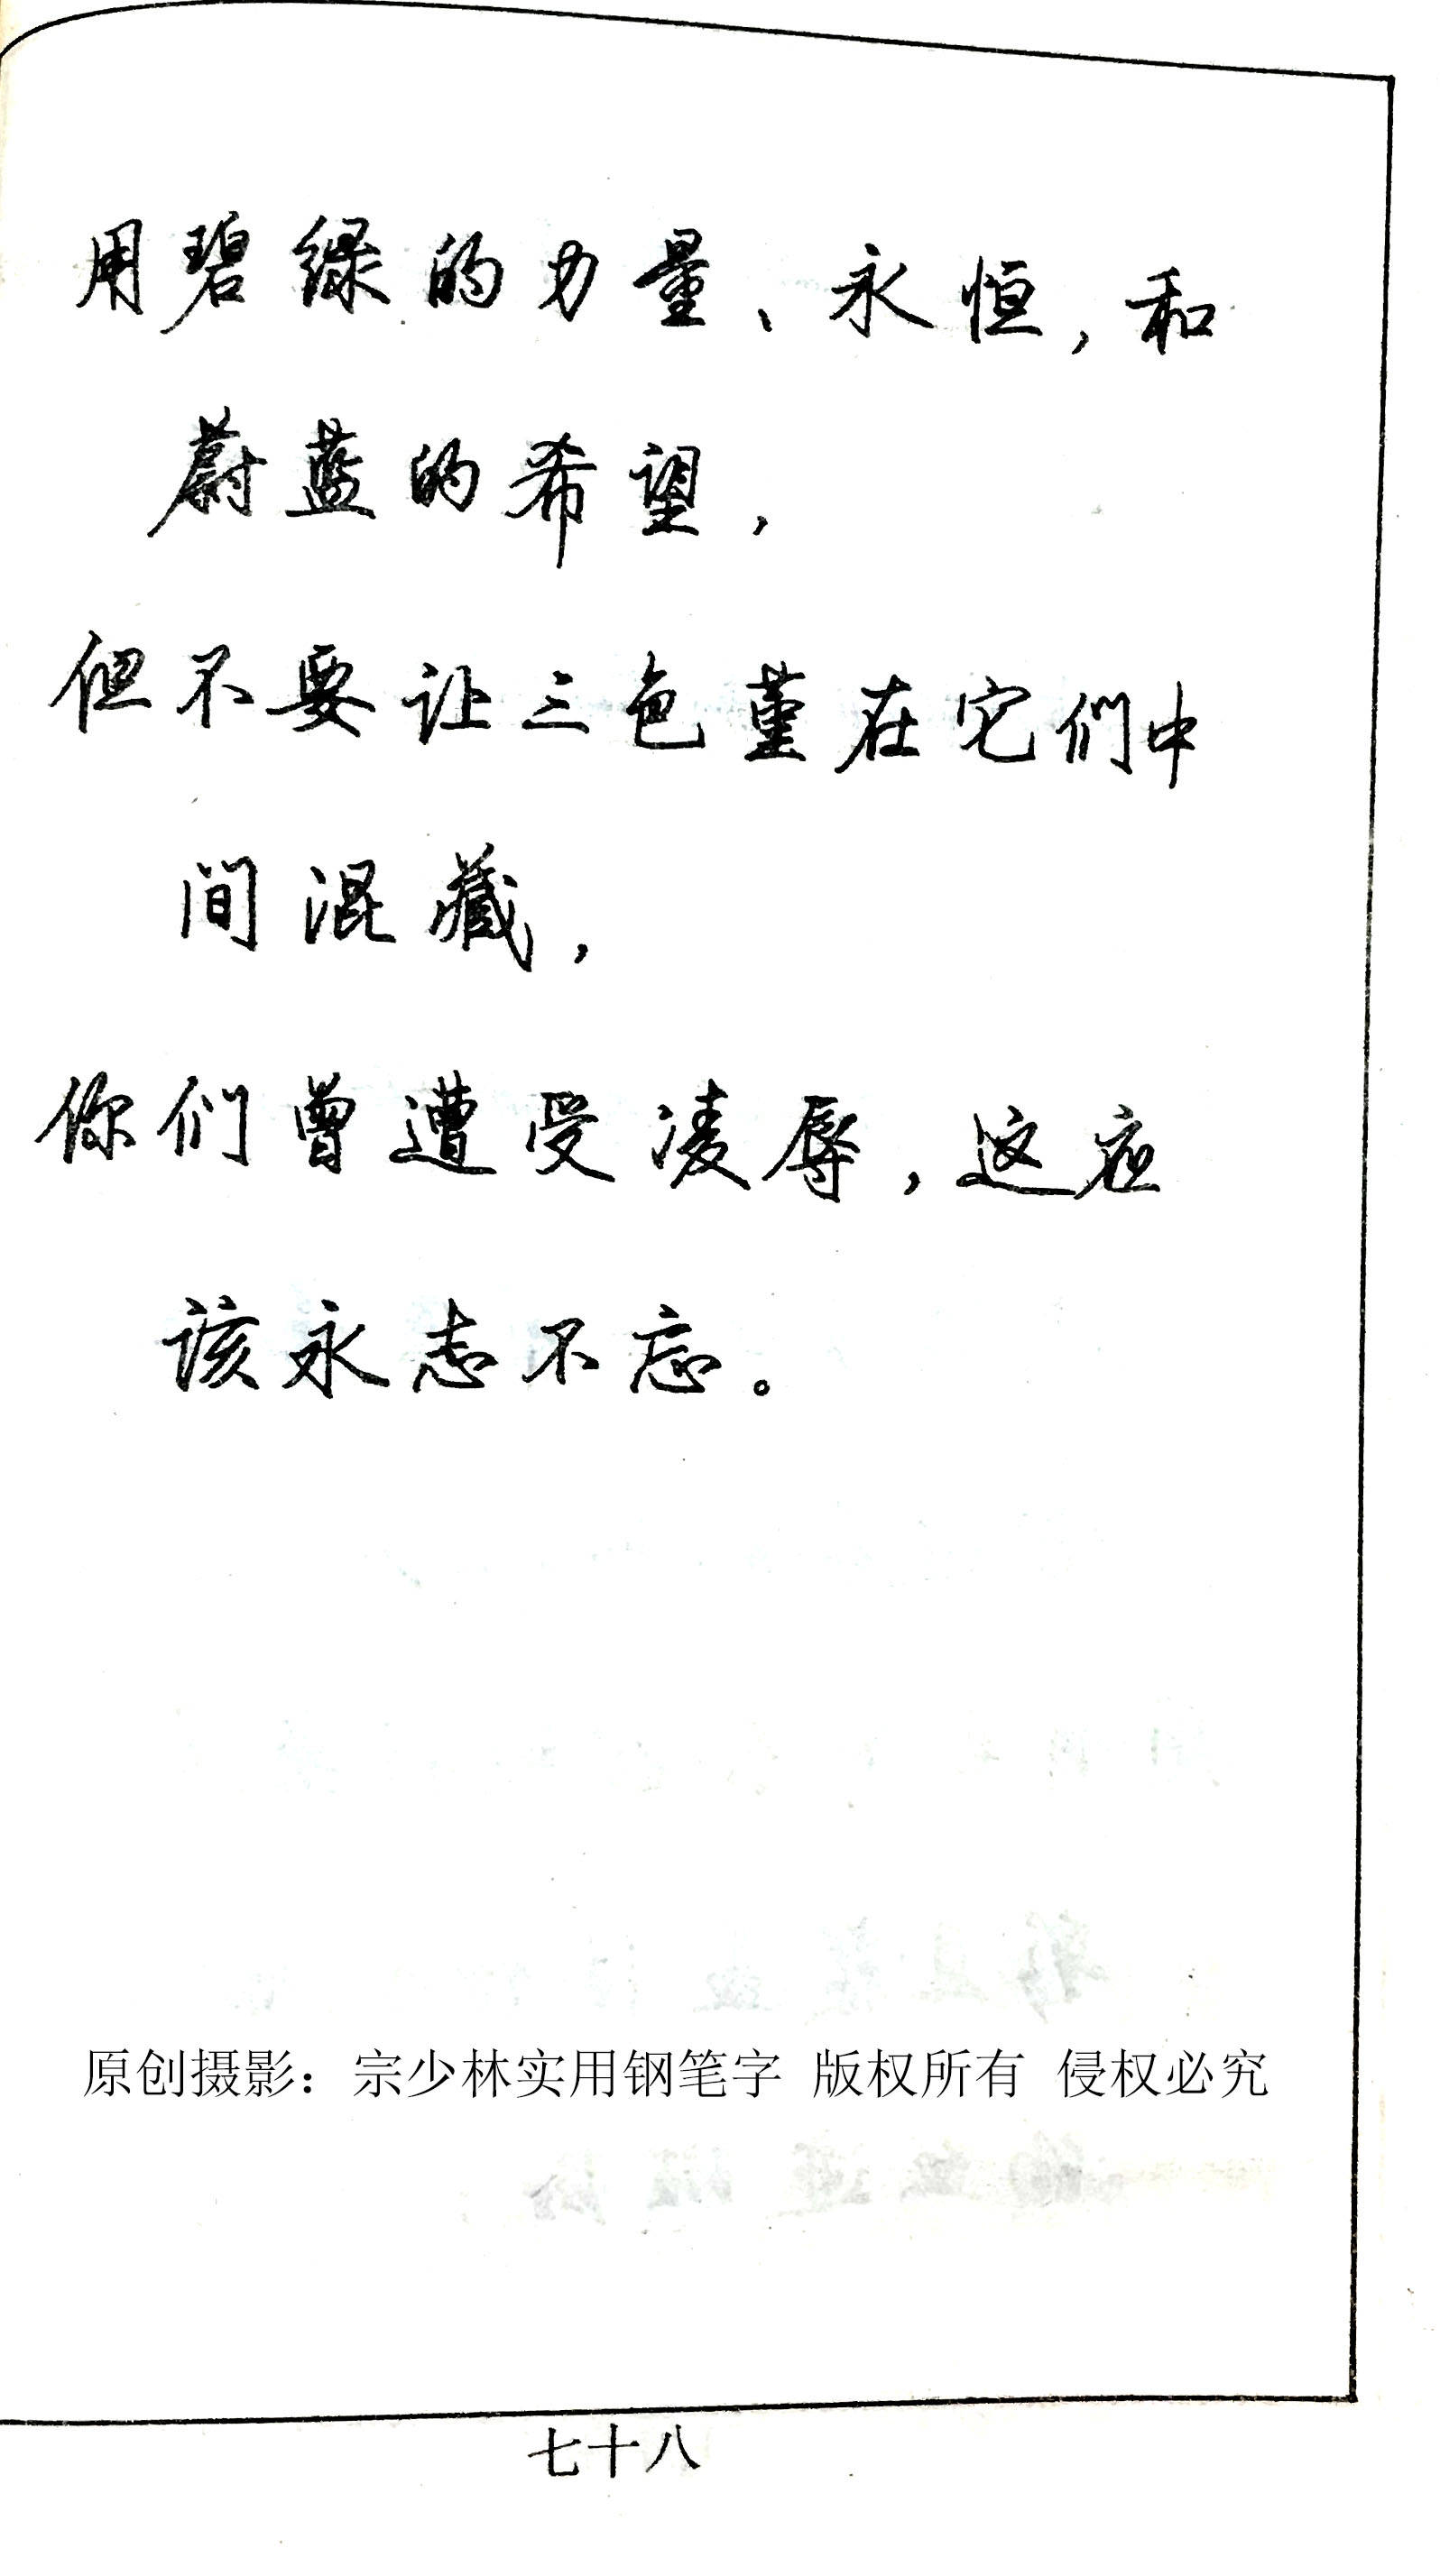 用碧绿的力量、永恒，和
蔚蓝的希望，
但不要让三色堇在它们中
间混藏，
你们曾遭受凌辱，这应
该永志不忘。
原创摄影：宗少林实用钢笔字 版权所有 侵权必究
七十八